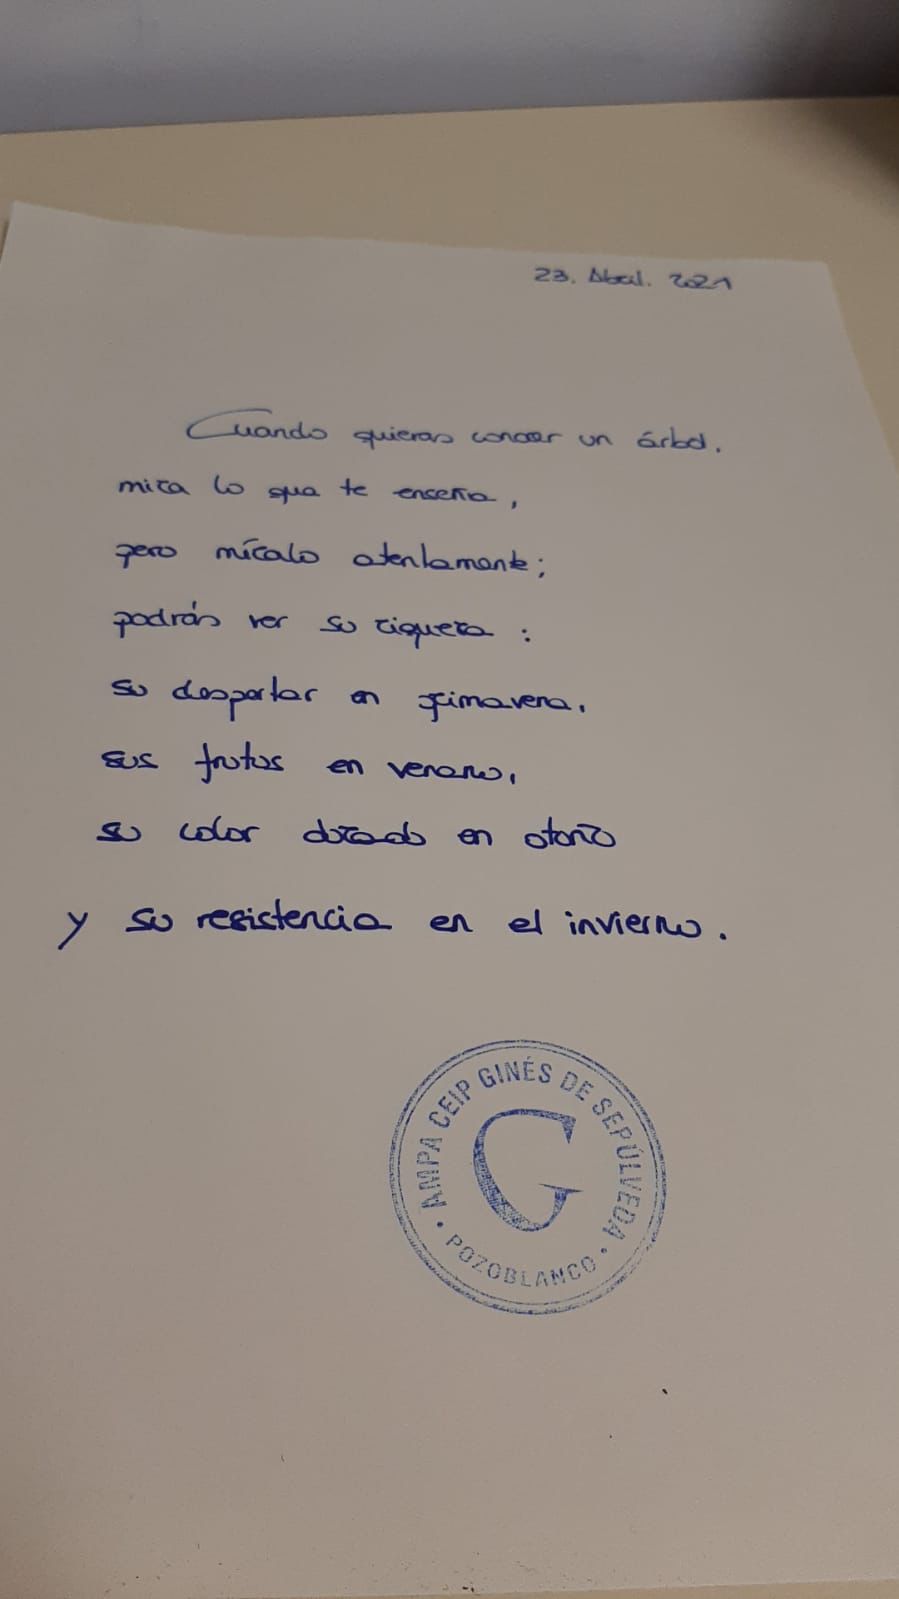 23. Abril. 2021
Cuando quieras conocer un árbol,
mira lo que te enseña,
pero míralo atentamente;
podrás ver su riqueza:
su despertar en primavera,
sus frutos en verano,
su color dorado en otoño
y su resistencia en el invierno.
AMPA CEIP GINÉS DE SEPÚLVEDA
G
• POZOBLANCO •